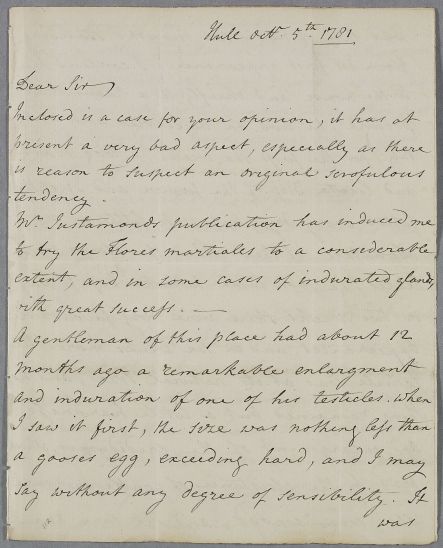 Hull Octr. 5th. 1781
Dear Sir
Inclosed is a case for your opinion, it has at
present a very bad aspect, especially as there
is reason to suspect an original scrofulous
tendency.
Mr. Justamonds publication has induced me
to try the Flores martiales to a considerable
extent, and in some cases of indurated glands,
with great success. —
A gentleman of this place had about 12
months ago a remarkable enlargment
and induration of one of his testicles. When
I saw it first, the size was nothing less than
a gooses egg, exceeding hard, and I may
say without any degree of sensibility. It
was